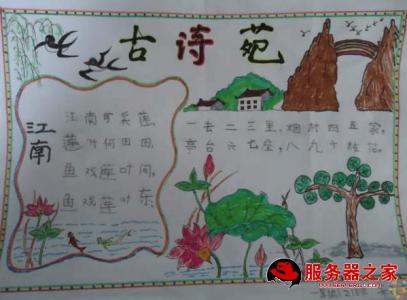 古诗苑
江南
江南可采莲
莲叶何田田
鱼戏莲叶间,
鱼戏莲叶东
一去二三里,烟村四五家,
亭台六七座,八九十枝花.
服务器之家